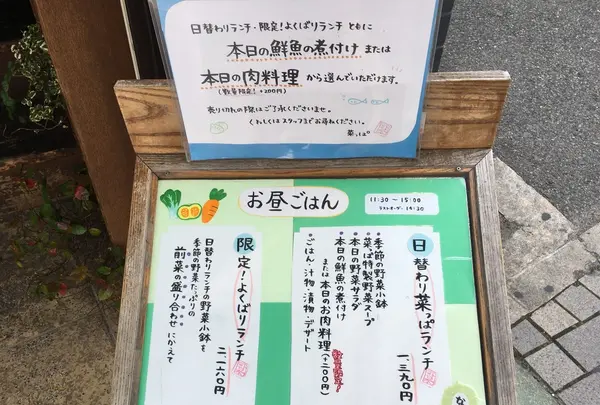 日替わりランチ・限定!よくばりランチ ともに
本日の鮮魚の煮付け または
本日の肉料理 から選んでいただけます。
(数量限定! +200円)
売り切れの際はご了承くださいませ。
くわしくはスタッフまでお尋ねください。
菜っぱ
お昼ごはん
11:30〜15:00
ラストオーダー 14:30
日替わり菜っぱランチ
一、三九〇円
・季節の野菜小鉢
・菜っぱ特製野菜スープ
・本日の野菜サラダ
・本日の鮮魚の煮付け
または本日のお肉料理(+二〇〇円)
数量限定!
・ごはん・汁物・漬物・デザート
限定!よくばりランチ
二、一六〇円
日替わりランチの野菜小鉢を
季節の野菜たっぷりの
前菜の盛り合わせ にかえて
な